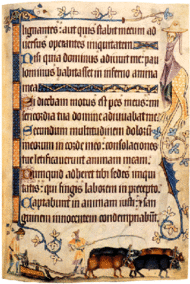 lignantes: aut quis stabit mecum ad
versus operantes iniquitatem
Nisi quia dominus adiuvit me: pau
lominus habitasset in inferno anima
mea
Si dicebam motus est pes meus: mi
sericordia tua domine adiuvabat me
Secundum multitudinem doloru
meorum in corde meo: consolaciones
tue letificaverunt animam meam
Numquid adheret tibi sedes iniqui
tatis: qui fingis laborem in precepto
Captabunt in animam iusti: et san
guinem innocentem condempnabunt